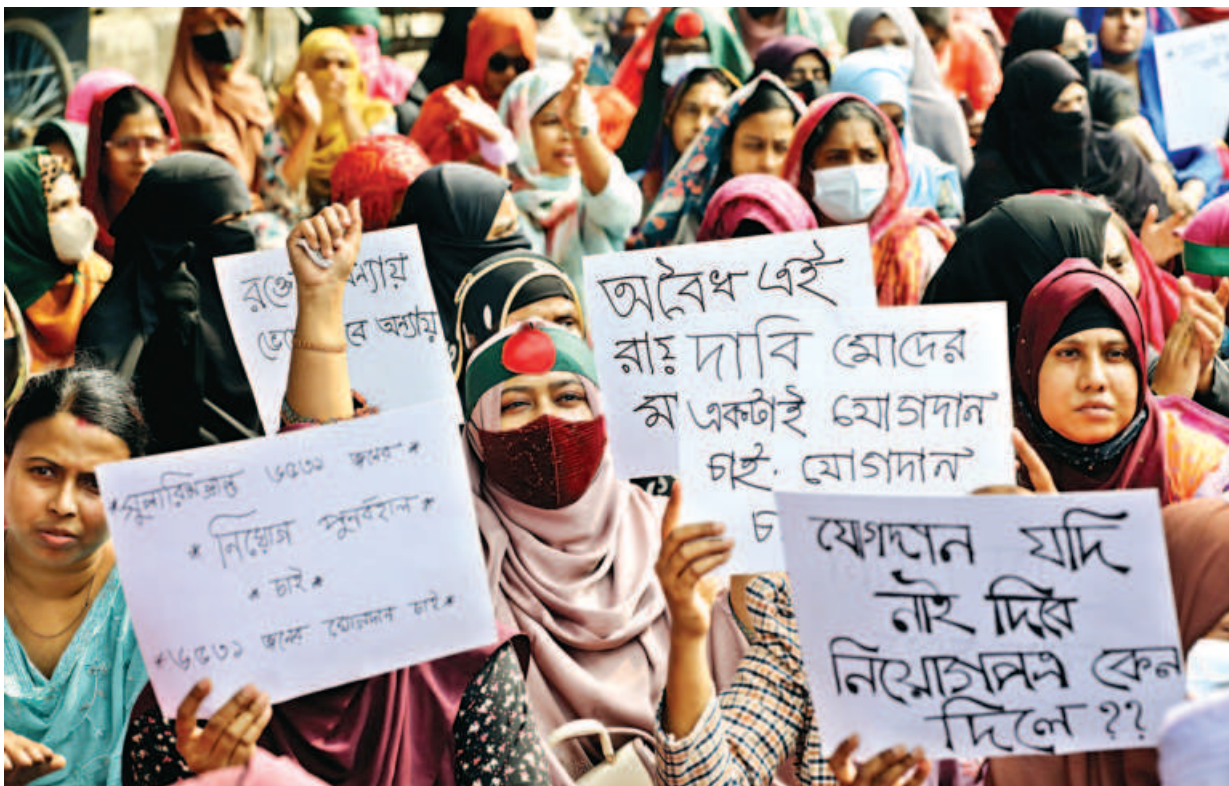 অন্যায়
অন্যায়
অবৈধ এই
রায়
ম
দাবি মোদের
একটাই যোগদান
চাই. যোগদান
চ
*সুপারিশপ্রাপ্ত ৬৫৩১ জনের*
* নিয়োগ পুনর্বহাল *
* চাই *
*৬৫৩১ জনের যোগদান চাই*
যোগদান যদি
নাই দিবে
নিয়োগপত্র কেন
দিলে ??